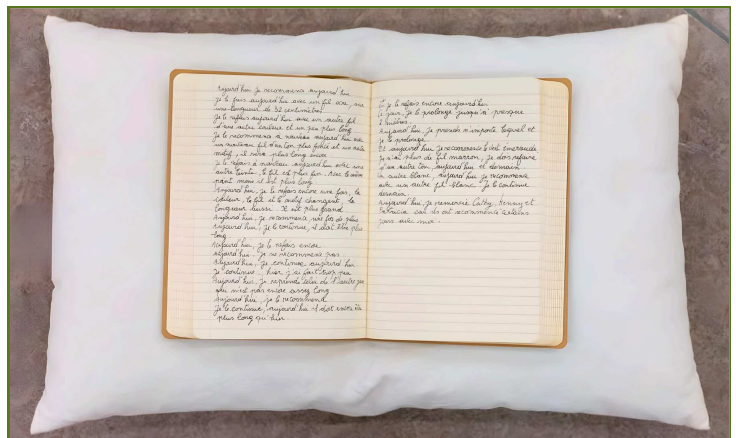 Aujourd'hui je recommence aujourd'hui
je le fais aujourd'hui avec un fil ocre, sur
une longueur de 52 centimètres
Je le refais aujourd'hui avec un autre fil
d'une autre couleur et un peu plus long
Je le recommence à nouveau aujourd'hui avec
un nouveau fil d'un ton plus foncé et un autre
motif, il sera plus long encore
Je le refais à nouveau aujourd'hui avec une
autre teinte, le fil est plus fin. Avec le même
point mais il est plus long
Aujourd'hui, je le refais encore une fois, la
couleur, le fil et le motif changent, la
longueur aussi. Il est plus grand
Aujourd'hui, je recommence une fois de plus
Aujourd'hui, je le continue, il doit être plus
long
Aujourd'hui, je le refais encore
Aujourd'hui je ne recommence pas
Aujourd'hui, je continue aujourd'hui
Je continue, hier j'ai fait trop peu
Aujourd'hui, je reprends celui de l'autre jour
qui n'est pas encore assez long
Aujourd'hui, je le recommence
Je le continue, aujourd'hui il doit encore être
plus long qu'hier
Et je le refais encore aujourd'hui
Ce jour, je le prolonge jusqu'à presque
2 mètres
Aujourd'hui, je prends n'importe lequel et
je le prolonge
Et aujourd'hui je recommence le vert émeraude
Je n'ai plus de fil marron, je dois refaire
d'un autre ton, aujourd'hui et demain
Un autre blanc, aujourd'hui je recommence
avec un autre fil blanc. Je le continue
demain
Aujourd'hui, je remercie Cathy, Kenny et
Patricia car ils ont recommencé certains
jours avec moi